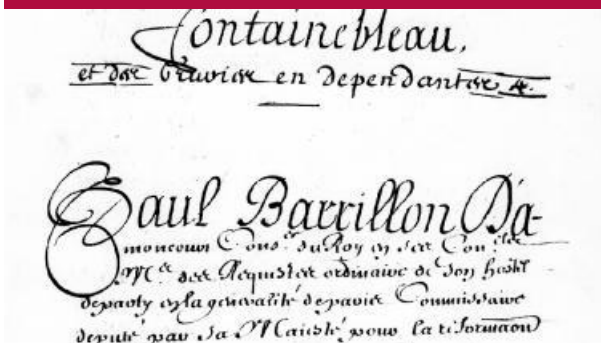 Fontainebleau,
et des Bruieres en dependantes &.
Paul Barrillon D'a-
moncourt Cons.er du Roy en ses Con.les
M.e des Requestes ordinaire de son hostel
departy en la generalité de paris Commissaire
deputé par sa Maiesté pour la reformaon